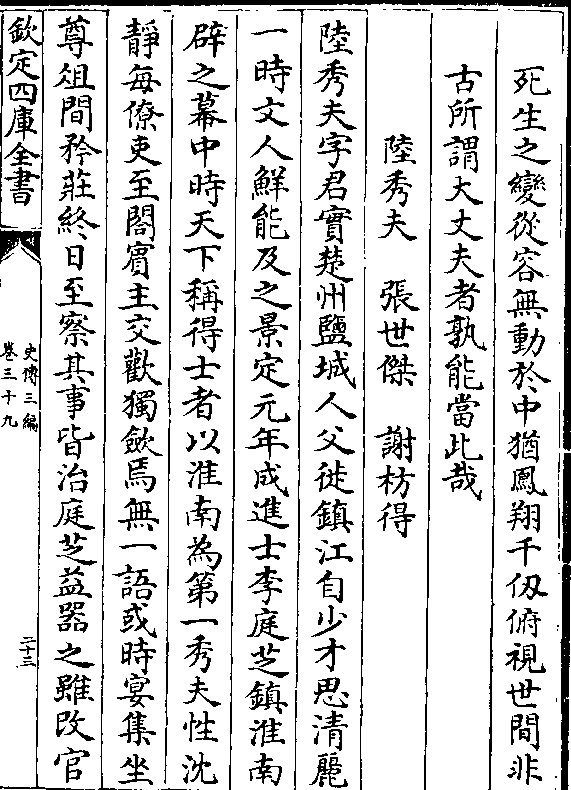 死生之變從容無動於中猶鳳翔千仭俯視世間非
古所謂大丈夫者孰能當此哉
陸秀夫　張世傑　謝枋得
陸秀夫字君實楚州鹽城人父徙鎮江自少才思清麗
一時文人鮮能及之景定元年成進士李庭芝鎮淮南
辟之幕中時天下稱得士者以淮南為第一秀夫性沈
靜每僚吏至閤賓主交歡獨斂焉無一語或時宴集坐
尊俎間矜莊終日至察其事皆治庭芝益器之雖改官
欽定四庫全書
史傳三編
卷三十九
二十三